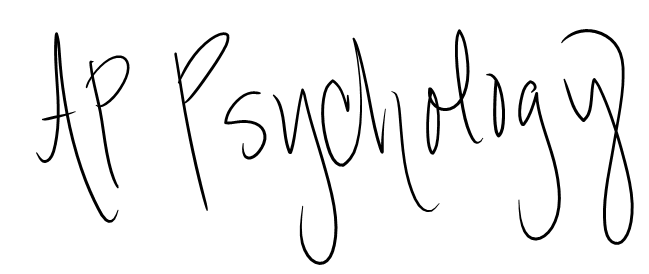 AP Psychology